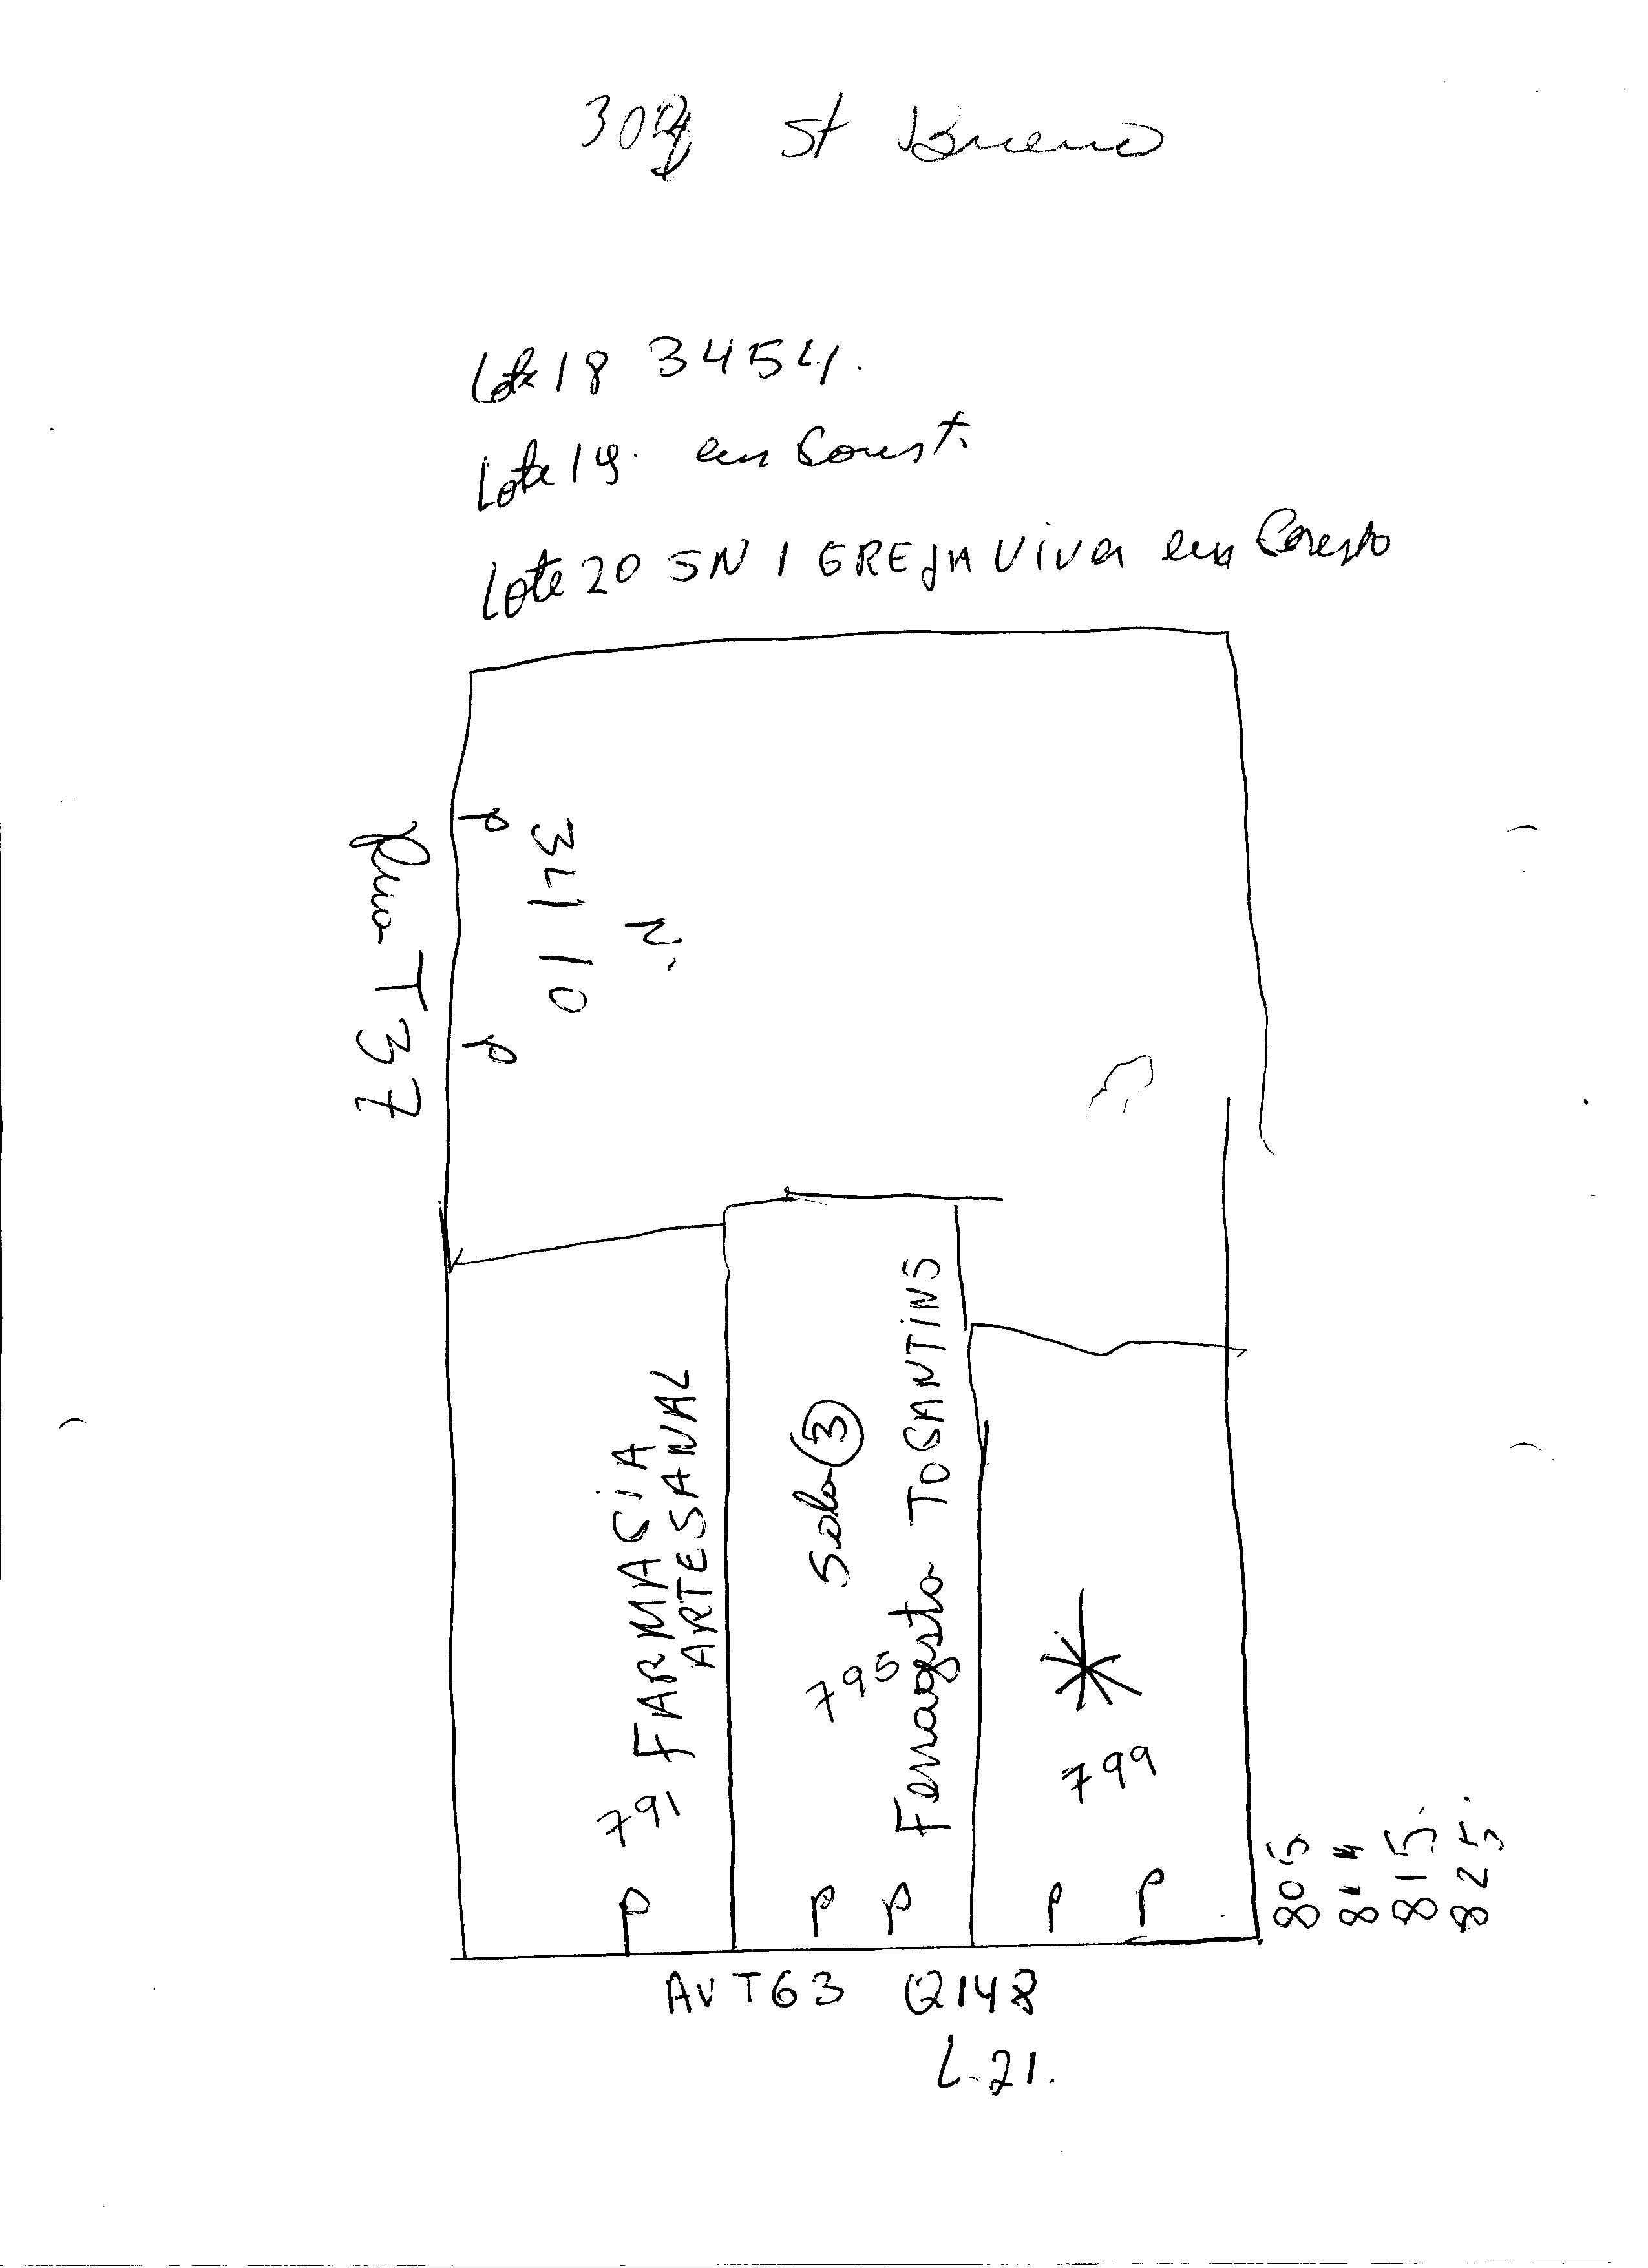 St Bueno
Lote 18 3454.
Lote 19. em Const.
Lote 20 SN IGREJA VIVA em Const
P
P
3410
N.
Rua T 37
791 FARMACIA
ARTESANAL
P
Sala 3
795
Ferragista TOCANTINS
P P
799
P P
805
814
815.
825.
AV T63 Q148
L-21.